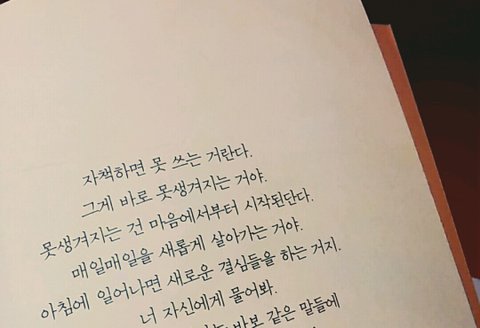 자책하면 못 쓰는 거란다.
그게 바로 못생겨지는 거야.
못생겨지는 건 마음에서부터 시작된단다.
매일매일을 새롭게 살아가는 거야.
아침에 일어나면 새로운 결심들을 하는 거지.
너 자신에게 물어봐.
바보 같은 말들에